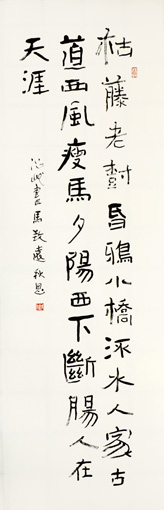 枯藤老樹昏鴉小橋流水人家古
道西風瘦馬夕陽西下斷腸人在
天涯
書馬致遠秋思